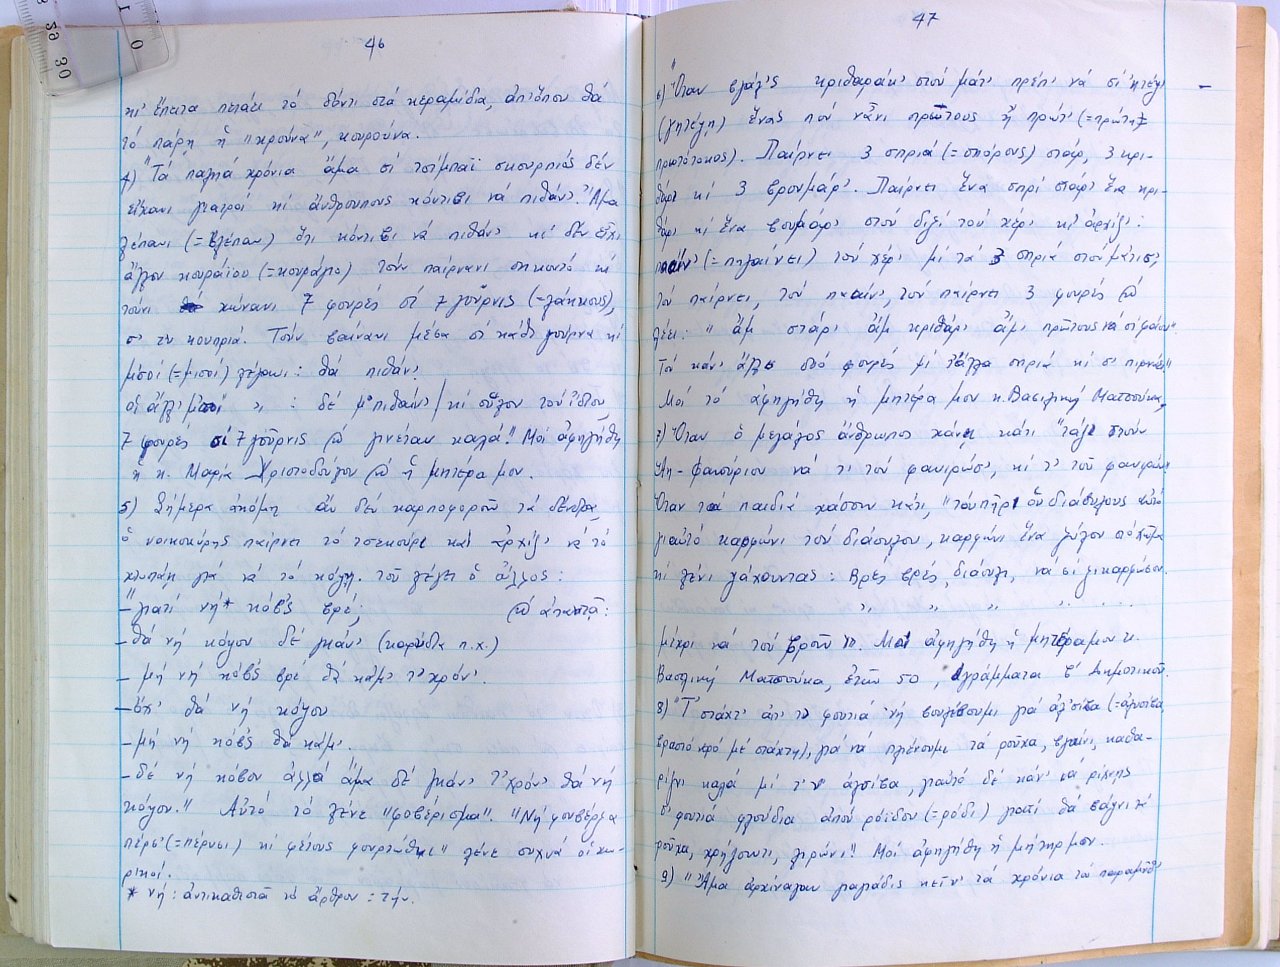 46
κι' ἔπειτα πετάει τό δόντι στά κεραμίδια, ἀπ'ὅπου θά
τό πάρη ἡ "κρούνα", κουρούνα.
4) "Τά παλιά χρόνια ἅμα σί τσίμπαϊ σκουρπιός δέν
εἴχανι γιατροί κι ἀνθρουπους κόντιβι νά πιθάν'. Ἅμα
λέπανι (=ἔβλεπαν) ὅτι κόντιβι νά πιθάν' κι δέν εἶχι
ἄλλον κουράϊου (=κουράγιο) τόν παίρνανι σηκουτό κι
τούνι χώνανι 7 φουρές σί 7 γοῦρνις (=λάκκους),
σ' τν κουπριά. Τούν βαίνανι μέσα σί κάθι γούρνα κι
μ'σοί (=μισοί) λέγανι: θά πιθάν'.
οἱ ἄλλ' μ'σοί " " : δέ μ' πιθαίν' / κι οὗλου τού ἴδιου
7 φουρές σί 7 γοῦρνις κ' γινέταν καλά". Μοῦ ἀφηγήθη
ἡ κ. Μαρία Χριστοδούλου κ' ἡ μητέρα μου.
5) Σήμερα ἀκόμη ἄν δέν καρποφοροῦν τά δένδρα,
ὁ νοικοκύρης παίρνει τό τσεκούρι καί ἀρχίζ' νά τό
χτυπάη γιά νά τό κόψη. τοῦ λέγει ὁ ἄλλος:
-"γιατί νή* κόβ'ς βρέ; κ' ἀπαντᾶ:
-θά νή κόψου δέ κάν' (καρύδια π.χ.)
- μή νή κόβ'ς βρέ θά κάμ' τ' χρόν'.
-ὄχ' θά νή κόψου
-μή νή κόβ'ς θά κάμ'.
-δέ νή κόβου ἀλλά ἅμα δέ κάν' τ' χρόν' θά νή
κόψου." Αὐτό τό λένε "φοβέρισμα". "Νή φουβέρξα
πέρσ' (=πέρυσι) κι φέτους φουρτώθκι" λένε συχνά οἱ χω-
ρικοί.
* νή: ἀντικαθιστᾶ τό ἄρθρον: τήν.
47
6) "Ὅταν βγάλ'ς κριθαράκ' στού μάτ' πρέπ' νά σί
ἕνας πού νἆνι πρῶτους ἤ πρώτ' (=πρώτη
πρωτότοκος). Παίρνει 3 σπριά (=σπόρους) στάρ', 3 κρι-
θάρ' κι 3 βρουμάρ'. Παίρνει ἕνα σπρί στάρ' ἕνα κρι-
θάρ' κι ἕνα βρουμάρ' στού διξί του χέρ' κι ἀρχίζ':
παίν' (=πηγαίνει) τού χέρ' μί τά 3 σπριά στου μάτ,
τού παίρνει, τού παίν', τού παίρνει 3 φουρές κ'
λέει: "ἄμ στάρ' ἄμ κριθάρ' ἄμ' πρῶτους νά σί φά
Τού κάν' ἄλλις δυό φουρές μί τἄλλα σπριά κι σ' πιρνάει"
Μοῦ τό ἀφηγήθη ἡ μητέρα μου κ. Βασιλική Ματσούκα,
7) Ὅταν ὁ μεγάλος ἄνθρωπος χάνει κάτι "τάζ' στούν
Ἁη-Φανούριου νά τ' τού φανιρώσ', κι τ' τοῦ φανιρών'"
Ὅταν τά παιδιά χάσουν κάτι, "τού πῆρι οὑ διάβουλους αὐτό
γι αὐτό καρφώνι τού διάουλου, καρφώνι ἕνα ξύλου στό χῶμα
κι λένι ψάχουντας: Βρές βρές, διάουλ', νά σί ξικαρφώσου.
" " " " " "
μέχρι νά τοῦ βροῦν". Μοῦ ἀφηγήθη ἡ μητέρα μου κ.
Βασιλική Ματσούκα, ἐτῶν 50, γράμματα β' Δημοτικοῦ.
8) "Τ' στάχτ' ἀπ' τν φουτιά νή βουλέβουμι γιά ἀλ'σίβα (=ἀλυσίβα
βραστό νερό μέ στάχτη), γιά νά πλένουμι τά ροῦχα, βγαίνι, καθα-
ρίζνι καλά μί τ'ν ἀλσίβα, γιαὐτό δέ κάν' νά ρίχνς
σ' φουτιά φλούδια ἀπού ρόιδου (=ρόδι) γιατί θά βάψνι τά
ροῦχα, χρήζουντι, λιρώνι". Μοῦ ἀφηγήθη ἡ μήτηρ μου.
9) "Ἅμα ἀρχίναγαν γιαγιάδις κεῖν' τά χρόνια τά παραμύθ'